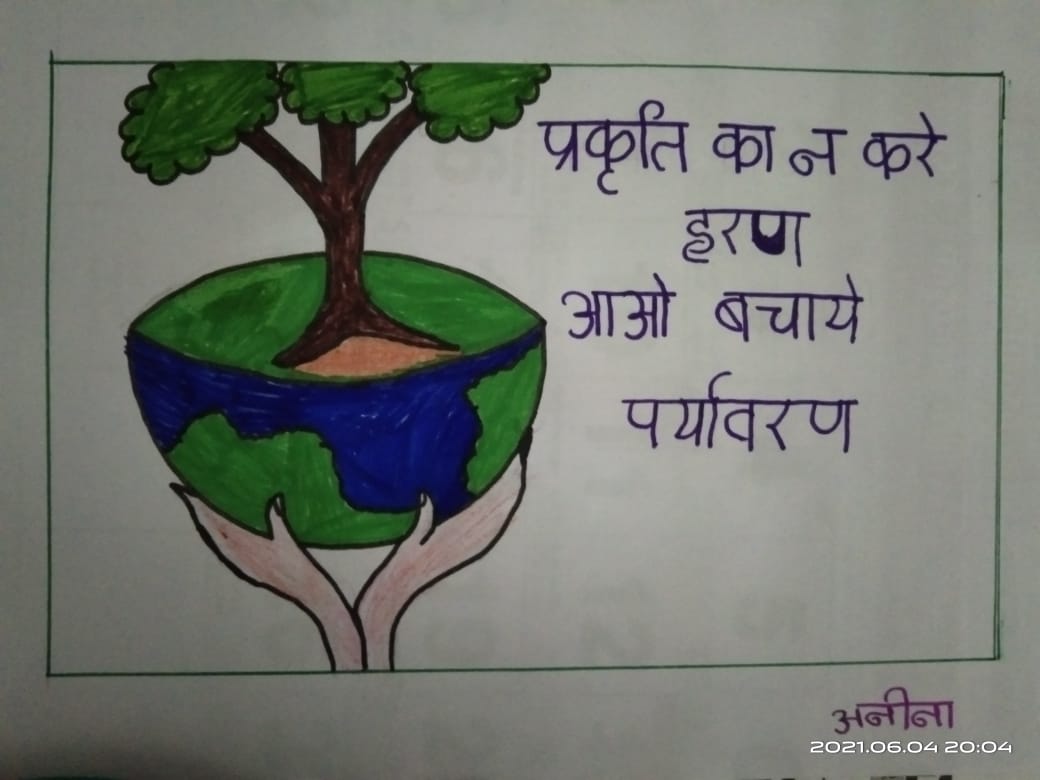 प्रकृति का न करे
हरण
आओ बचाये
पर्यावरण
अनीना
2021.06.04 20:04